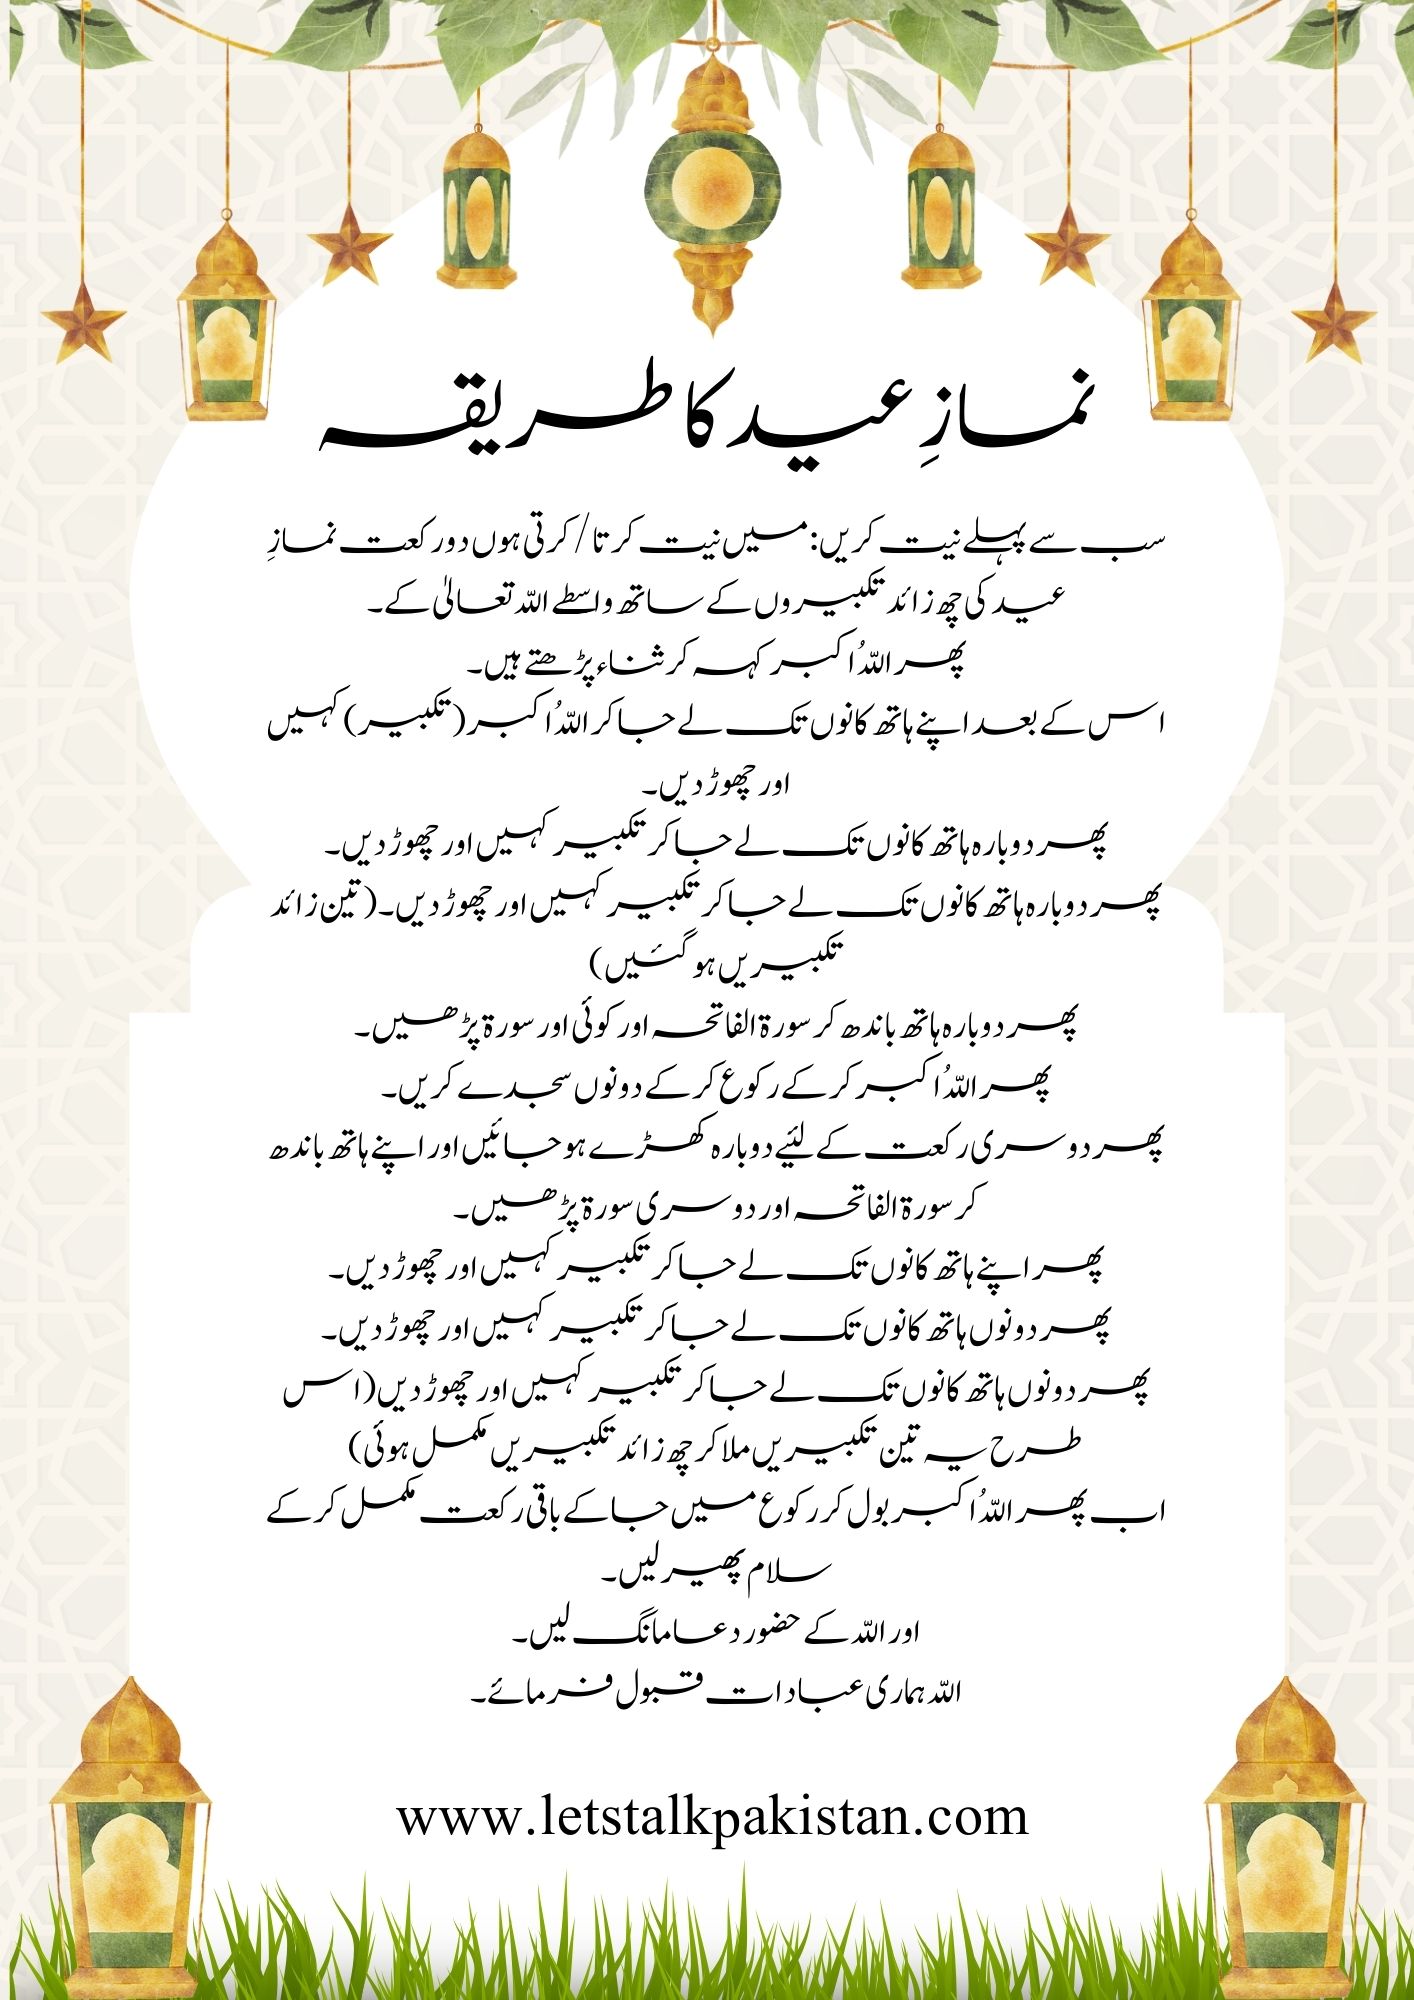 نمازِ عید کا طریقہ
سب سے پہلے نیت کریں: میں نیت کرتا/کرتی ہوں دو رکعت نمازِ
عید کی چھ زائد تکبیروں کے ساتھ واسطے اللہ تعالیٰ کے۔
پھر اللہُ اکبر کہہ کر ثناء پڑھتے ہیں۔
اس کے بعد اپنے ہاتھ کانوں تک لے جا کر اللہُ اکبر (تکبیر) کہیں
اور چھوڑ دیں۔
پھر دوبارہ ہاتھ کانوں تک لے جا کر تکبیر کہیں اور چھوڑ دیں۔
پھر دوبارہ ہاتھ کانوں تک لے جا کر تکبیر کہیں اور چھوڑ دیں۔ (تین زائد
تکبیریں ہو گئیں)
پھر دوبارہ ہاتھ باندھ کر سورۃ الفاتحہ اور کوئی اور سورۃ پڑھیں۔
پھر اللہُ اکبر کر کے رکوع کر کے دونوں سجدے کریں۔
پھر دوسری رکعت کے لئیے دوبارہ کھڑے ہو جائیں اور اپنے ہاتھ باندھ
کر سورۃ الفاتحہ اور دوسری سورۃ پڑھیں۔
پھر اپنے ہاتھ کانوں تک لے جا کر تکبیر کہیں اور چھوڑ دیں۔
پھر دونوں ہاتھ کانوں تک لے جا کر تکبیر کہیں اور چھوڑ دیں۔
پھر دونوں ہاتھ کانوں تک لے جا کر تکبیر کہیں اور چھوڑ دیں (اس
طرح یہ تین تکبیریں ملا کر چھ زائد تکبیریں مکمل ہوئی)
اب پھر اللہُ اکبر بول کر رکوع میں جا کے باقی رکعت مکمل کر کے
سلام پھیر لیں۔
اور اللہ کے حضور دعا مانگ لیں۔
اللہ ہماری عبادات قبول فرمائے۔
www.letstalkpakistan.com